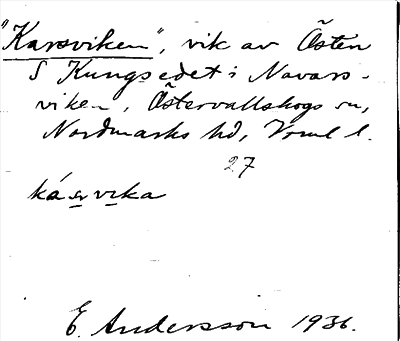 "Karsviken", vik av Östen
S Kungsedet i Navars-
viken, Östervallskogs sn,
Nordmarks hd, Vrml l.
27
ká vika
E. Andersson 1936.